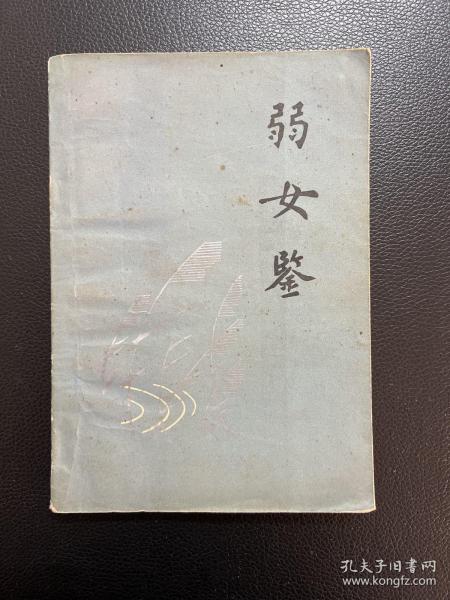 弱女鉴
孔夫子旧书网
www.kongfz.com